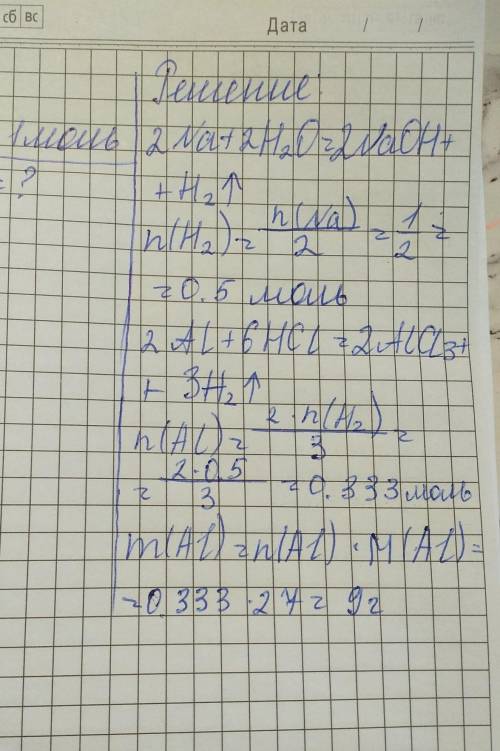 сб вс
Дата / /
Решение:
1 моль
2Na+2H₂O=2NaOH+
= ?
+H₂↑
n(H₂)=n(Na)/2=1/2=
=0.5 моль
2Al+6HCl=2AlCl₃+
+3H₂↑
n(Al)=2·n(H₂)/3=
=2·0.5/3=0.333 моль
m(Al)=n(Al)·M(Al)=
=0.333·27=9г